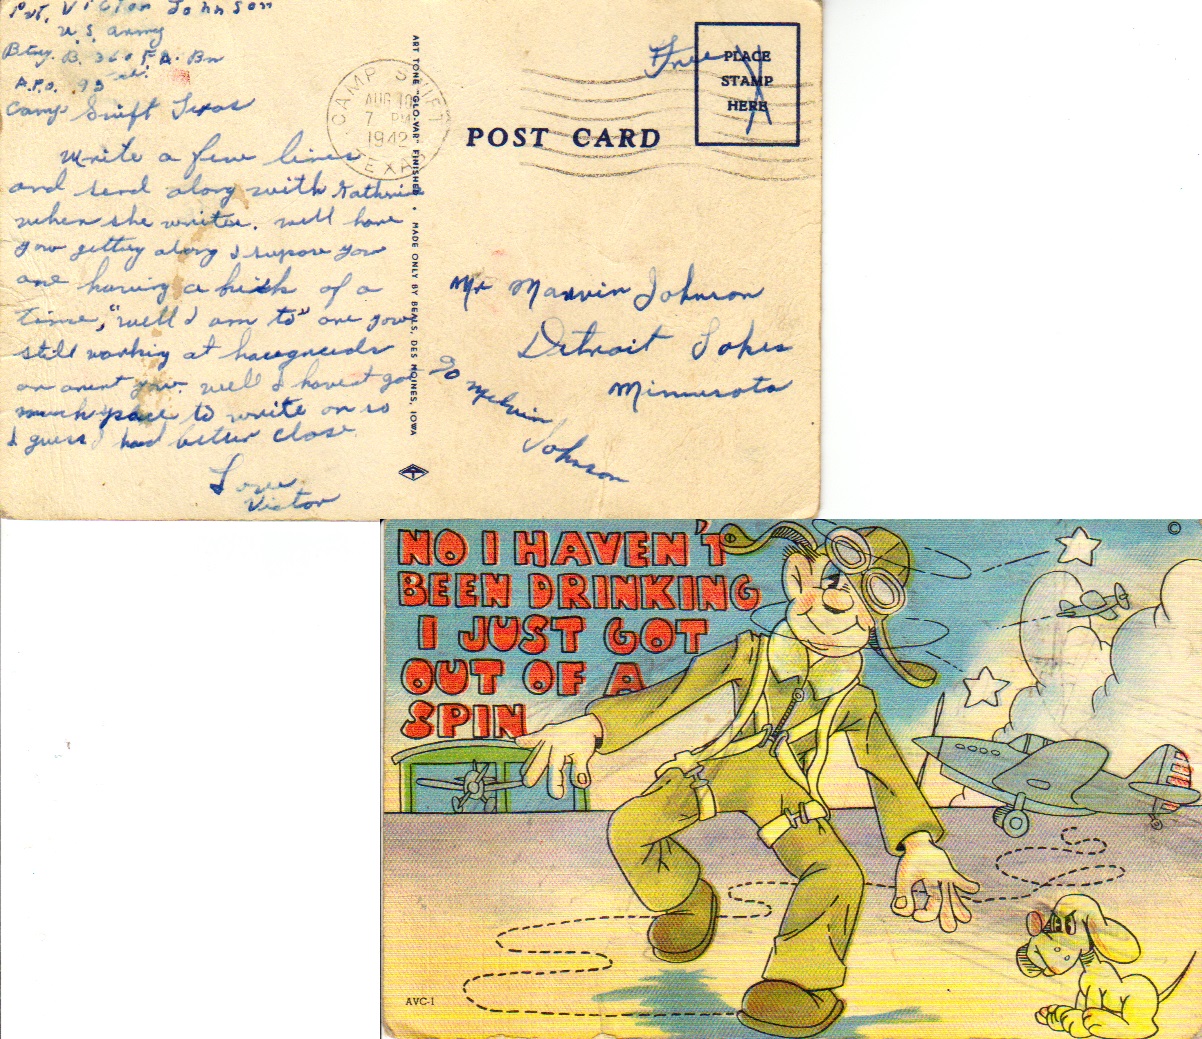 Pvt. Victor Johnson
U.S. Army
Btry. B. 360 F.A. Bn
A.P.O. 95
Camp Swift Texas
Write a few lines
and send along with Kathrine
when she writes. well how
you getting along I supose you
are having a of a
time, "well I am to" are you
still working at
or arent you. well I havent got
much space to write on so
I guess I had better close.
Love,
Victor
CAMP SWIFT
AUG 10
7 PM
1942
TEXAS
ART TONE "GLO-VAR" FINISHED • MADE ONLY BY BEALS, DES MOINES, IOWA
POST CARD
Free
PLACE
STAMP
HERE
Mr Marvin Johnson
Detroit Lakes
Minnesota
To Melvin
Johnson
NO I HAVEN'T
BEEN DRINKING
I JUST GOT
OUT OF A
SPIN
©
AVC-1